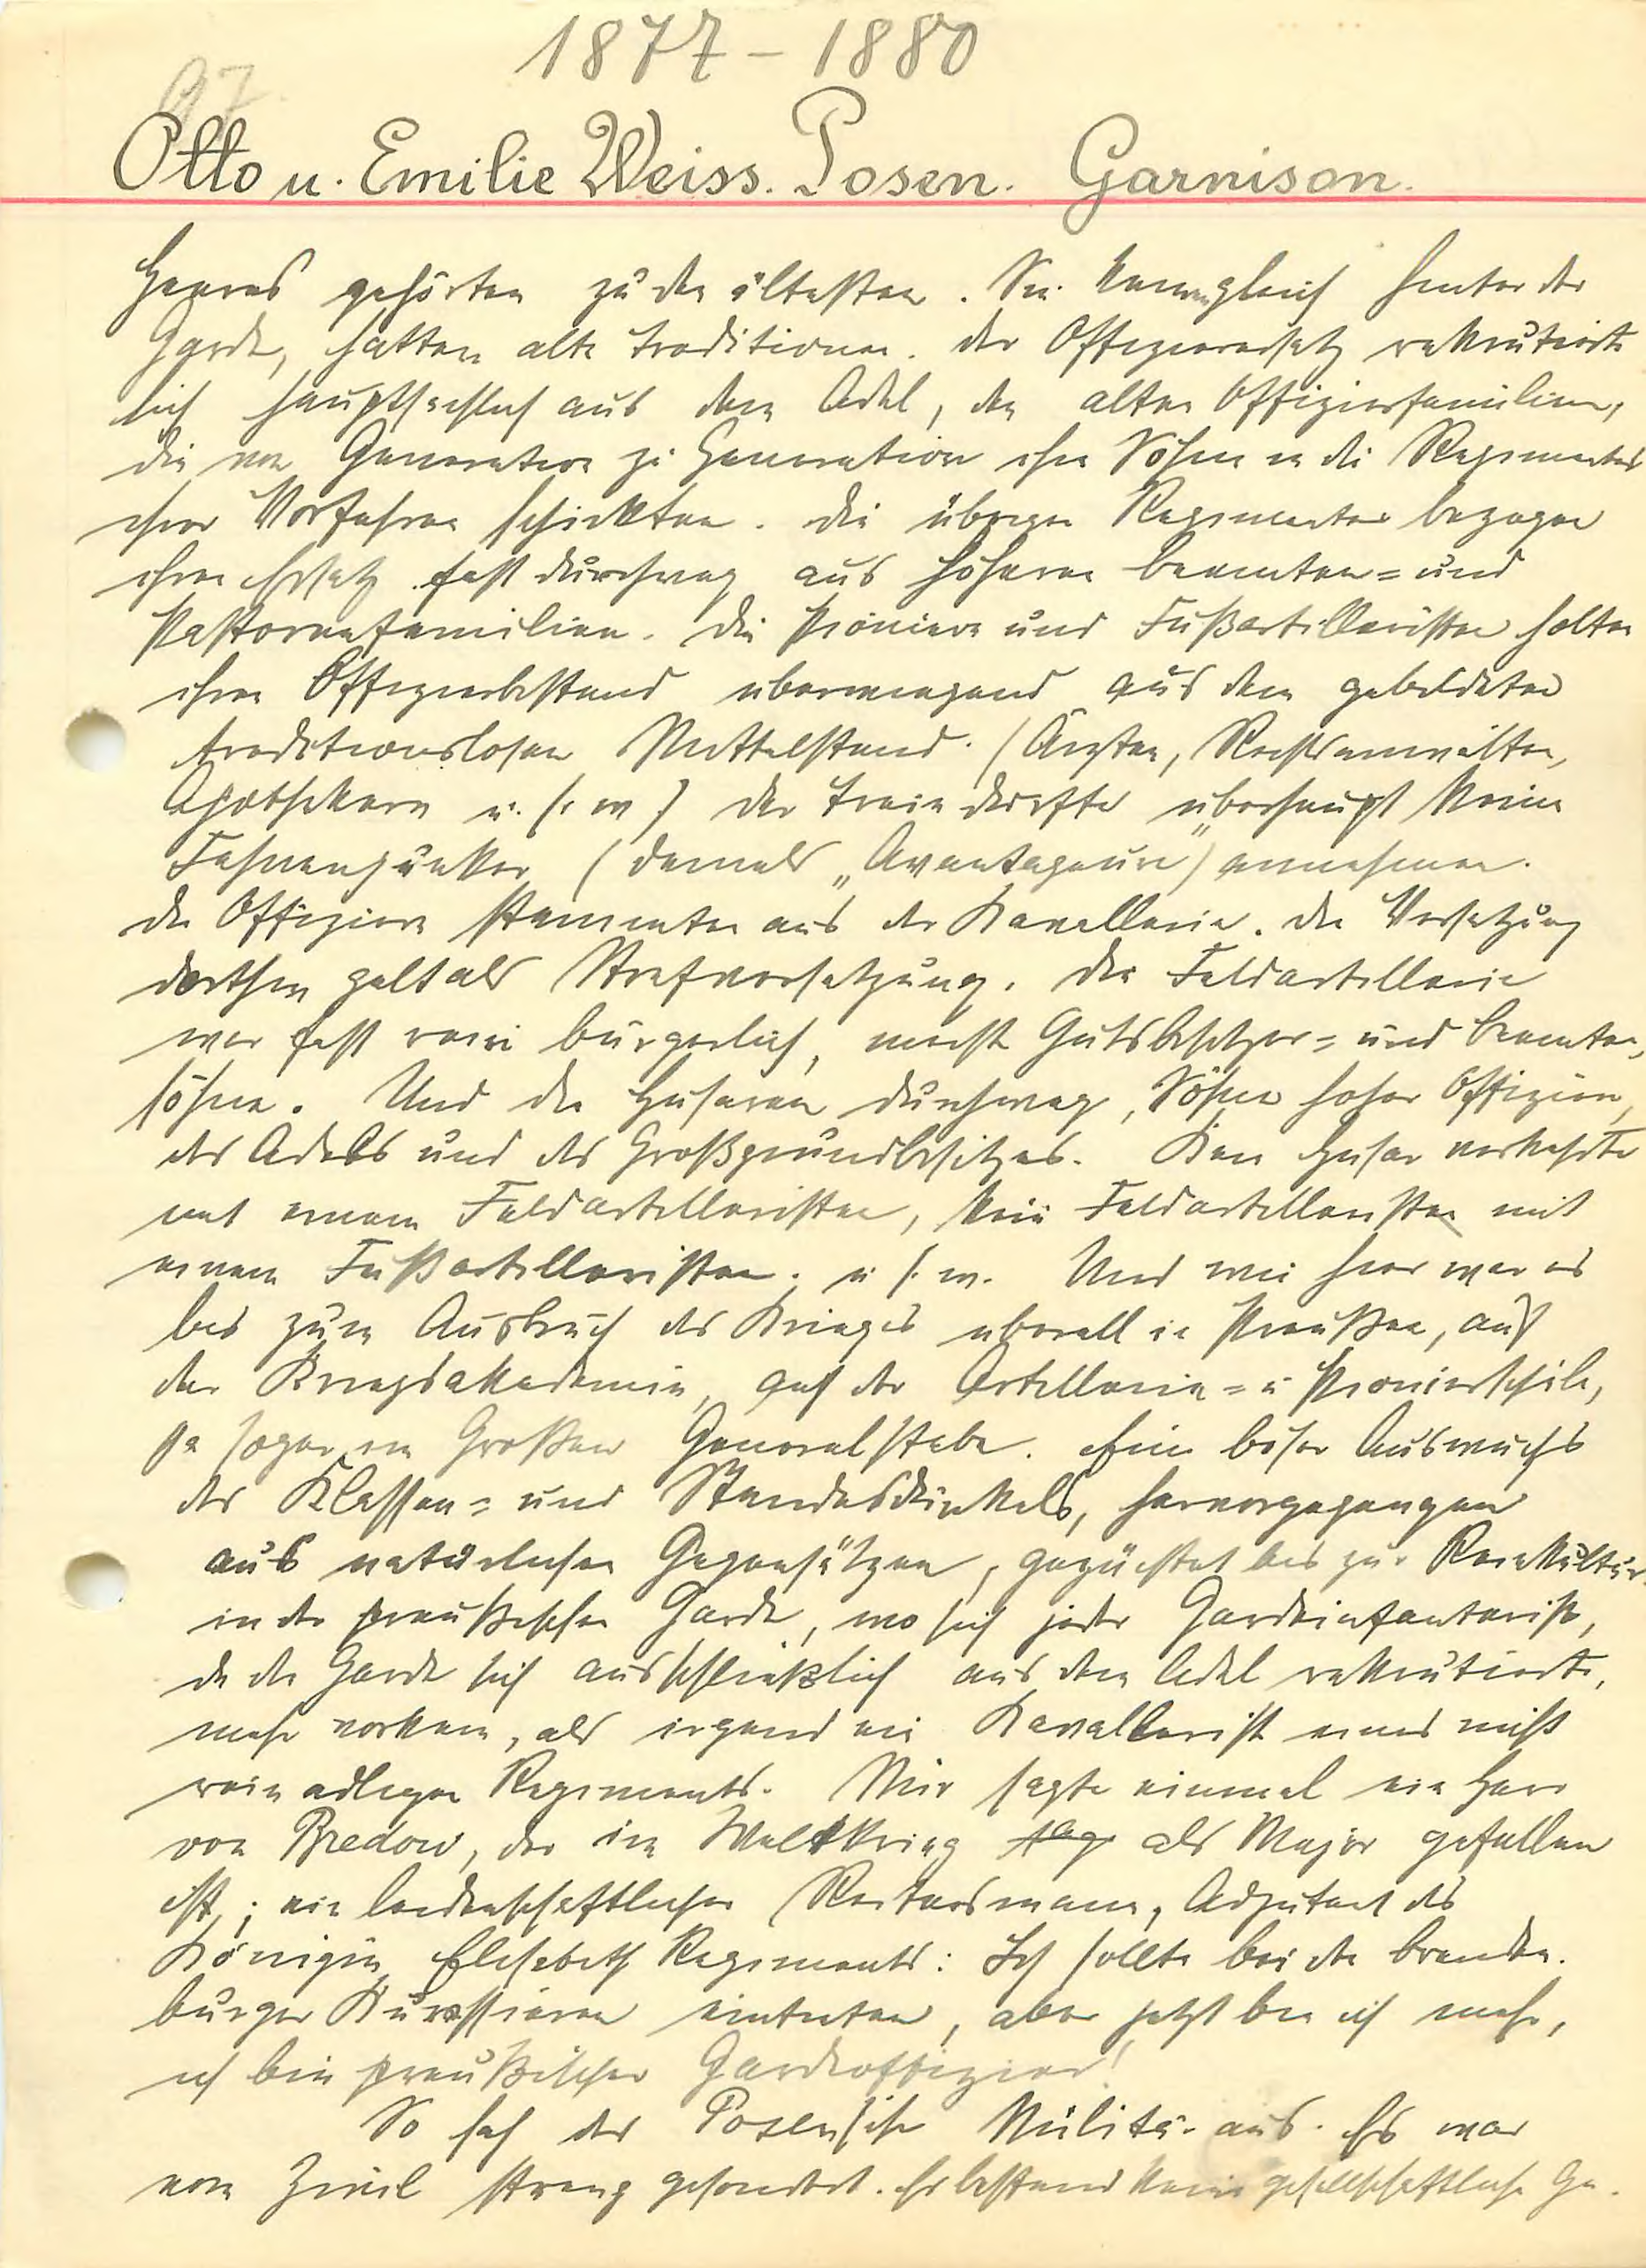 1877 - 1880
97
Otto u. Emilie Weiss. Posen. Garnison.
Heeres gehörten zu den ältesten. Sie kamen gleich hinter der
Garde, hatten alte Traditionen. Der Offiziersersatz rekrutierte
sich hauptsächlich aus dem Adel, den alten Offiziersfamilien,
die von Generation zu Generation ihre Söhne in die Regimenter
ihrer Vorfahren schickten. Die übrigen Regimenter bezogen
ihren Ersatz fast durchweg aus höheren Beamten= und
Pastorenfamilien. Die Pioniere und Fußartilleristen holten
ihren Offiziersbestand überwiegend aus dem gebildeten
traditionslosen Mittelstand. (Ärzten, Rechtsanwälten,
Apothekern u. s. w) Der Train durfte überhaupt keine
Fahnenjunker (damals „Avantageure") annehmen.
Die Offiziere stammten aus der Kavallerie. Die Versetzung
dorthin galt als Strafversetzung. Die Feldartillerie
war fast rein bürgerlich, meist Gutsbesitzer= und Beamten,
söhne. Und die Husaren durchweg, Söhne hoher Offiziere,
des Adels und des Großgrundbesitzes. Kein Husar verkehrte
mit einem Feldartilleristen, kein Feldartilleristen mit
einem Fußartilleristen. u. s. w. Und wie hier war es
bis zum Ausbruch des Krieges überall in Preußen, auf
der Kriegsakademie, auf der Artillerie= u Pionierschule,
ja sogar im Großen Generalstabe. Ein böser Auswuchs
des Klassen= und Standesdünkels, hervorgegangen
aus natürlichen Gegensätzen, gezüchtet bis zur Reinkultur
in der preußischen Garde, wo sich jeder Gardeinfanterist,
da die Garde sich ausschließlich aus dem Adel rekrutierte,
mehr vorkam, als irgend ein Kavallerist eines nicht
rein adligen Regiments. Mir sagte einmal ein Herr
von Bredow, der im Weltkrieg als Major gefallen
ist, ein leidenschaftlicher Reitersmann, Adjutant des
Königin Elisabeth Regiments: Ich sollte bei den Branden.
burger Kürassieren eintreten, aber jetzt bin ich mehr,
ich bin preußischer Gardeoffizier!
So sah das Posensche Militär aus. Es war
vom Zivil streng gesondert. Es bestand keine gesellschaftliche Ge.